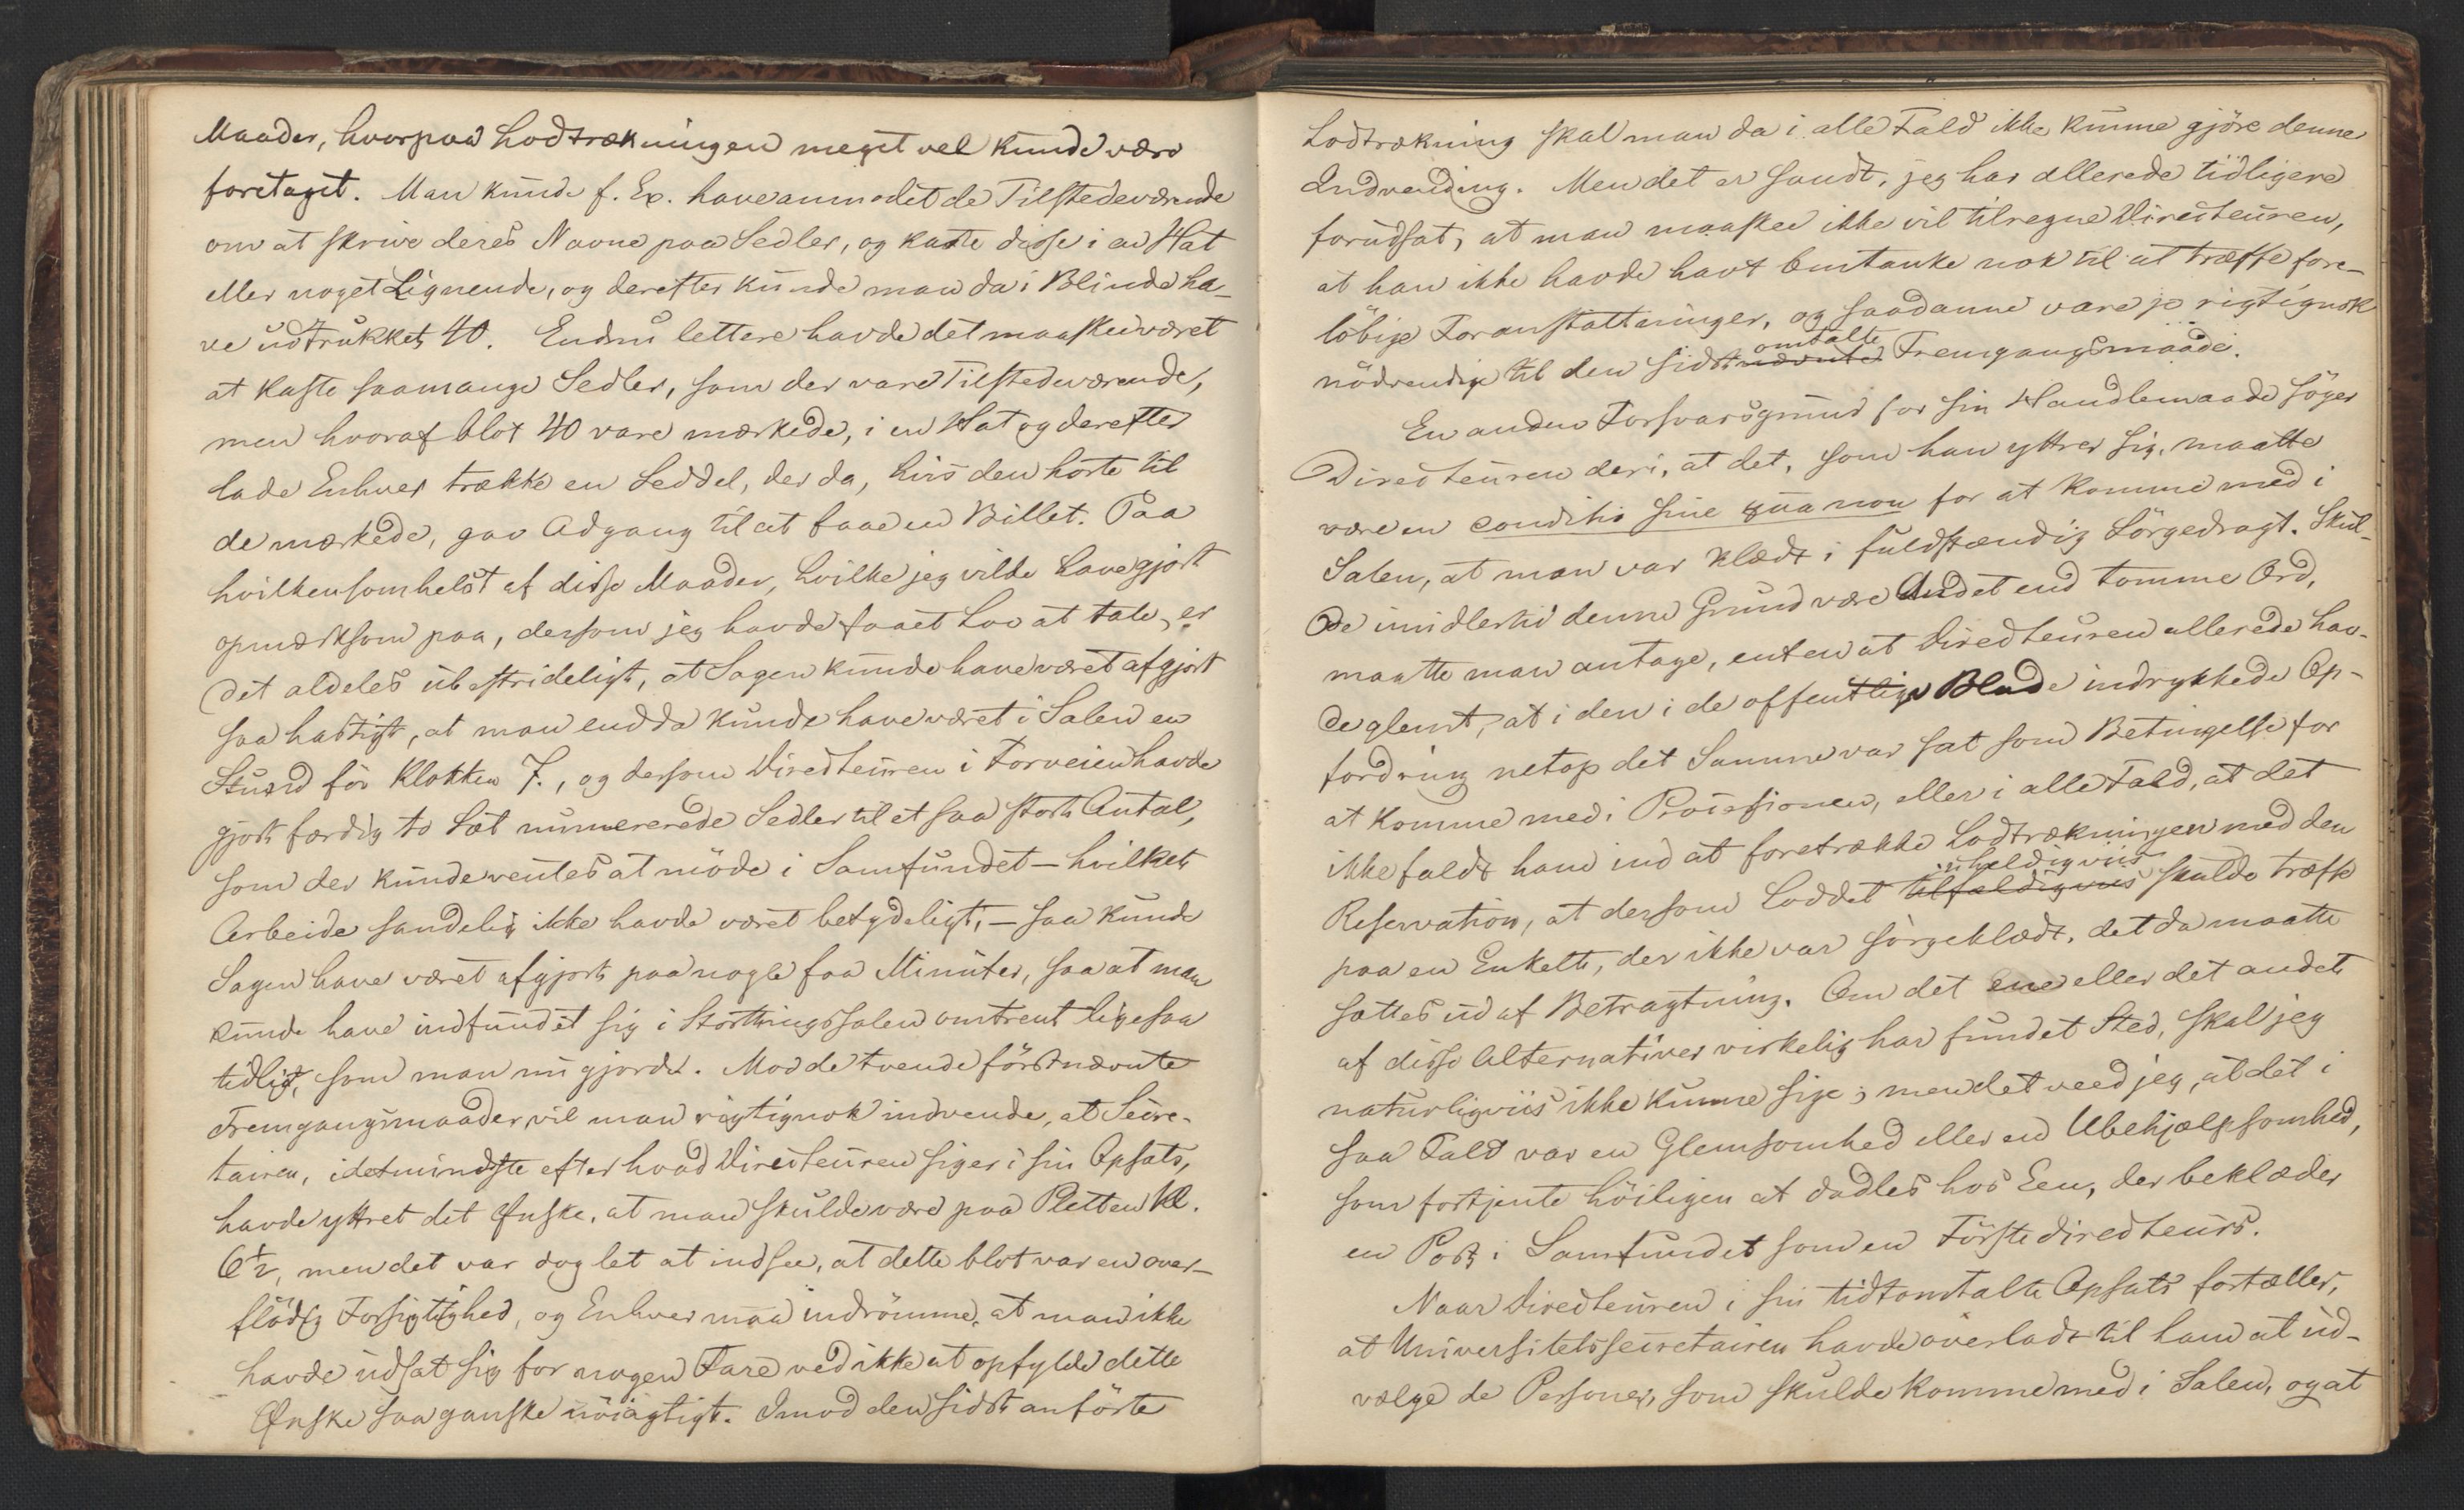 Maader, hvorpaa Lodtrækningen meget vel kunde være
foretaget. Man kunde f. Ex. have anmodet de Tilstedeværende
om at skrive deres Navne paa Sedler, og kaste disse i en Hat
eller noget Lignende, og derefter kunde man da i Blinde ha-
ve udtrukket 40. Endnu lettere havde det maaskee været
at kaste saamange Sedler, som der vare Tilstedeværende,
men hvoraf blot 40 vare mærkede, i en Hat og derefter
lade Enhver trække en Seddel, der da, hvis den hørte til
de mærkede, gav Adgang til at faae en Billet. Paa
hvilkensomhelst af disse Maader, hvilke jeg vilde have gjort
opmærksom paa, dersom jeg havde faaet Lov at tale, er
det aldeles ubestrideligt, at Sagen kunde have været afgjort
saa hastigt, at man endda kunde have været i Salen en
Stund før Klokken 7., og dersom Directeuren i Forveien havde
gjort færdig to Sæt numererede Sedler til et saa stort Antal,
som der kunde ventes at møde i Samfundet – hvilket
Arbeide sandelig ikke havde været betydeligt, – saa kunde
Sagen have været afgjort paa nogle faa Minuter, saa at man
kunde have indfundet sig i Storthingssalen omtrent ligesaa
tidligt, som man nu gjorde. Mod de tvende førstnævnte
Fremgangsmaader vil man rigtignok indvende, at Secre-
tairen, idetmindste efter hvad Directeuren siger i sin Opsats,
havde yttret det Ønske, at man skulde være paa Pletten Kl.
6½, men det var dog let at indsee, at dette blot var en over-
flødig Forsigtighed, og Enhver maa indrømme, at man ikke
havde udsat sig for nogen Fare ved ikke at opfylde dette
Ønske saa ganske nöiagtigt. Imod den sidst anførte
Lodtrækning skal man da i alle Fald ikke kunne gjöre denne
Indvending. Men det er sandt, jeg har allerede tidligere
forudsat, at man maaskee ikke vil tilregne Directeuren,
at han ikke havde havt Omtanke nok til at træffe fore-
löbige Foranstaltninger, og saadanne vare jo rigtignok
nödvendige til den sidst nævnte omtalte Fremgangsmaade.
En anden Forsvarsgrund for sin Handlemaade söger
Directeuren deri, at det, som han yttrer sig, maatte
være en conditio sine qua non for at komme med i
Salen, at man var klædt i fuldstændig Sörgedragt. Skul-
de imidlertid denne Grund være Andet end tomme Ord,
maatte man antage, enten at Directeuren allerede hav-
de glemt, at i den i de offentlige Blade indrykkede Op-
fordring netop det Samme var sat som Betingelse for
at komme med i Processionen, eller i alle Fald, at det
ikke faldt ham ind at foretrække Lodtrækningen med den
Reservation, at dersom Loddet tilfældigviis uheldigviis skulde træffe
paa en Enkelt, der ikke var sörgeklædt, det da maatte
sættes ud af Betragtning. Om det ene eller det andet
af disse Alternativer virkelig har fundet Sted, skal jeg
naturligviis ikke kunne sige; men det veed jeg, at det i
saa Fald var en Glemsomhed eller en Ubehjælpsomhed,
som fortjente höiligen at dadles hos Een, der beklæder
en Post i Samfundet som en Förstedirecteurs.
Naar Directeuren i sin tidtomtalte Opsats fortæller,
at Universitetssecretairen havde overladt til ham at ud-
vælge de Personer, som skulde komme med i Salen, og at